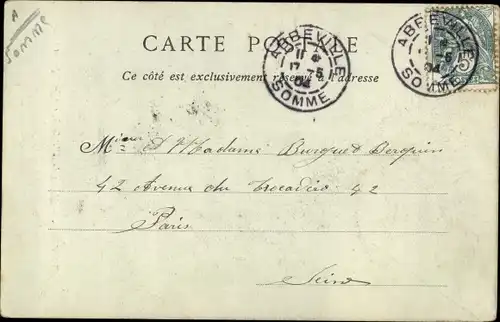 A
Somme
CARTE POSTALE
Ce côté est exclusivement réservé à l'adresse
ABBEVILLE
17 - 5
04
SOMME
ABBEVILLE
04
SOMME
5
et Madame Burguet Berquin
42 Avenue du Trocadéro 42
Paris
Seine